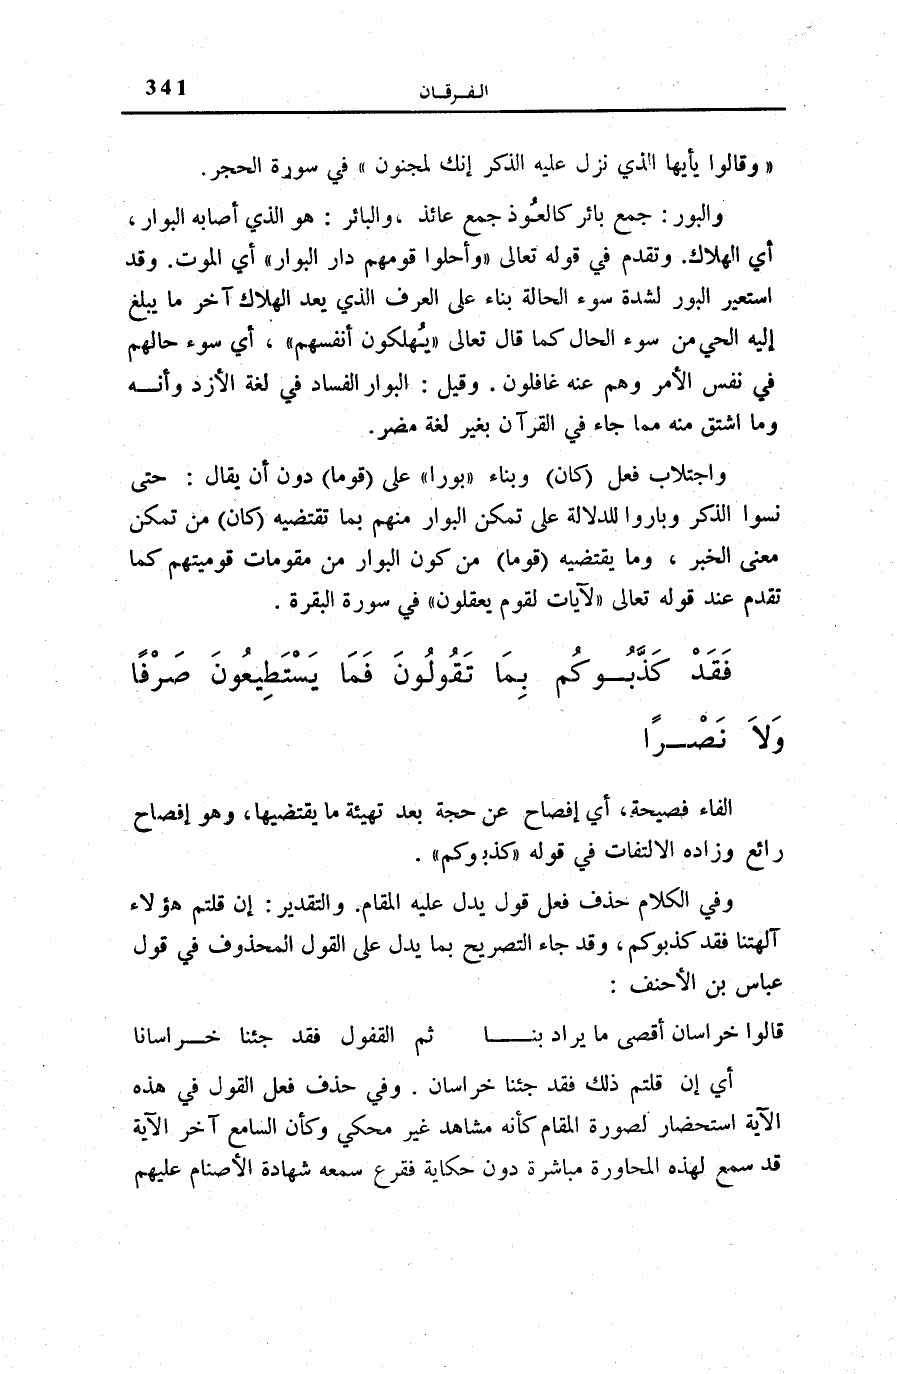 الفرقان 341
« وقالوا يأيها الذي نزل عليه الذكر إنك لمجنون » في سورة الحجر.
والبور : جمع بائر كالعُوذ جمع عائذ ، والبائر : هو الذي أصابه البوار ،
أي الهلاك. وتقدم في قوله تعالى «وأحلوا قومهم دار البوار» أي الموت. وقد
استعير البور لشدة سوء الحالة بناء على العرف الذي يعد الهلاك آخر ما يبلغ
إليه الحي من سوء الحال كما قال تعالى «يُهلكون أنفسهم» ، أي سوء حالهم
في نفس الأمر وهم عنه غافلون . وقيل : البوار الفساد في لغة الأزد وأنــه
وما اشتق منه مما جاء في القرآن بغير لغة مضر.
واجتلاب فعل (كان) وبناء «بورا» على (قوما) دون أن يقال : حتى
نسوا الذكر وباروا للدلالة على تمكن البوار منهم بما تقتضيه (كان) من تمكن
معنى الخبر ، وما يقتضيه (قوما) من كون البوار من مقومات قوميتهم كما
تقدم عند قوله تعالى «لآيات لقوم يعقلون» في سورة البقرة .
فَقَدْ كَذَّبُــوكُم بِمَا تَقُولُونَ فَمَا يَسْتَطِيعُونَ صَرْفًا
وَلاَ نَصْــرًا
الفاء فصيحة، أي إفصاح عن حجة بعد تهيئة ما يقتضيها، وهو إفصاح
رائع وزاده الالتفات في قوله «كذبوكم» .
وفي الكلام حذف فعل قول يدل عليه المقام. والتقدير : إن قلتم هؤلاء
آلهتنا فقد كذبوكم، وقد جاء التصريح بما يدل على القول المحذوف في قول
عباس بن الأحنف :
قالوا خراسان أقصى ما يراد بنــــا ثم القفول فقد جئنا خــراسانا
أي إن قلتم ذلك فقد جئنا خراسان . وفي حذف فعل القول في هذه
الآية استحضار لصورة المقام كأنه مشاهد غير محكي وكأن السامع آخر الآية
قد سمع لهذه المحاورة مباشرة دون حكاية فقرع سمعه شهادة الأصنام عليهم